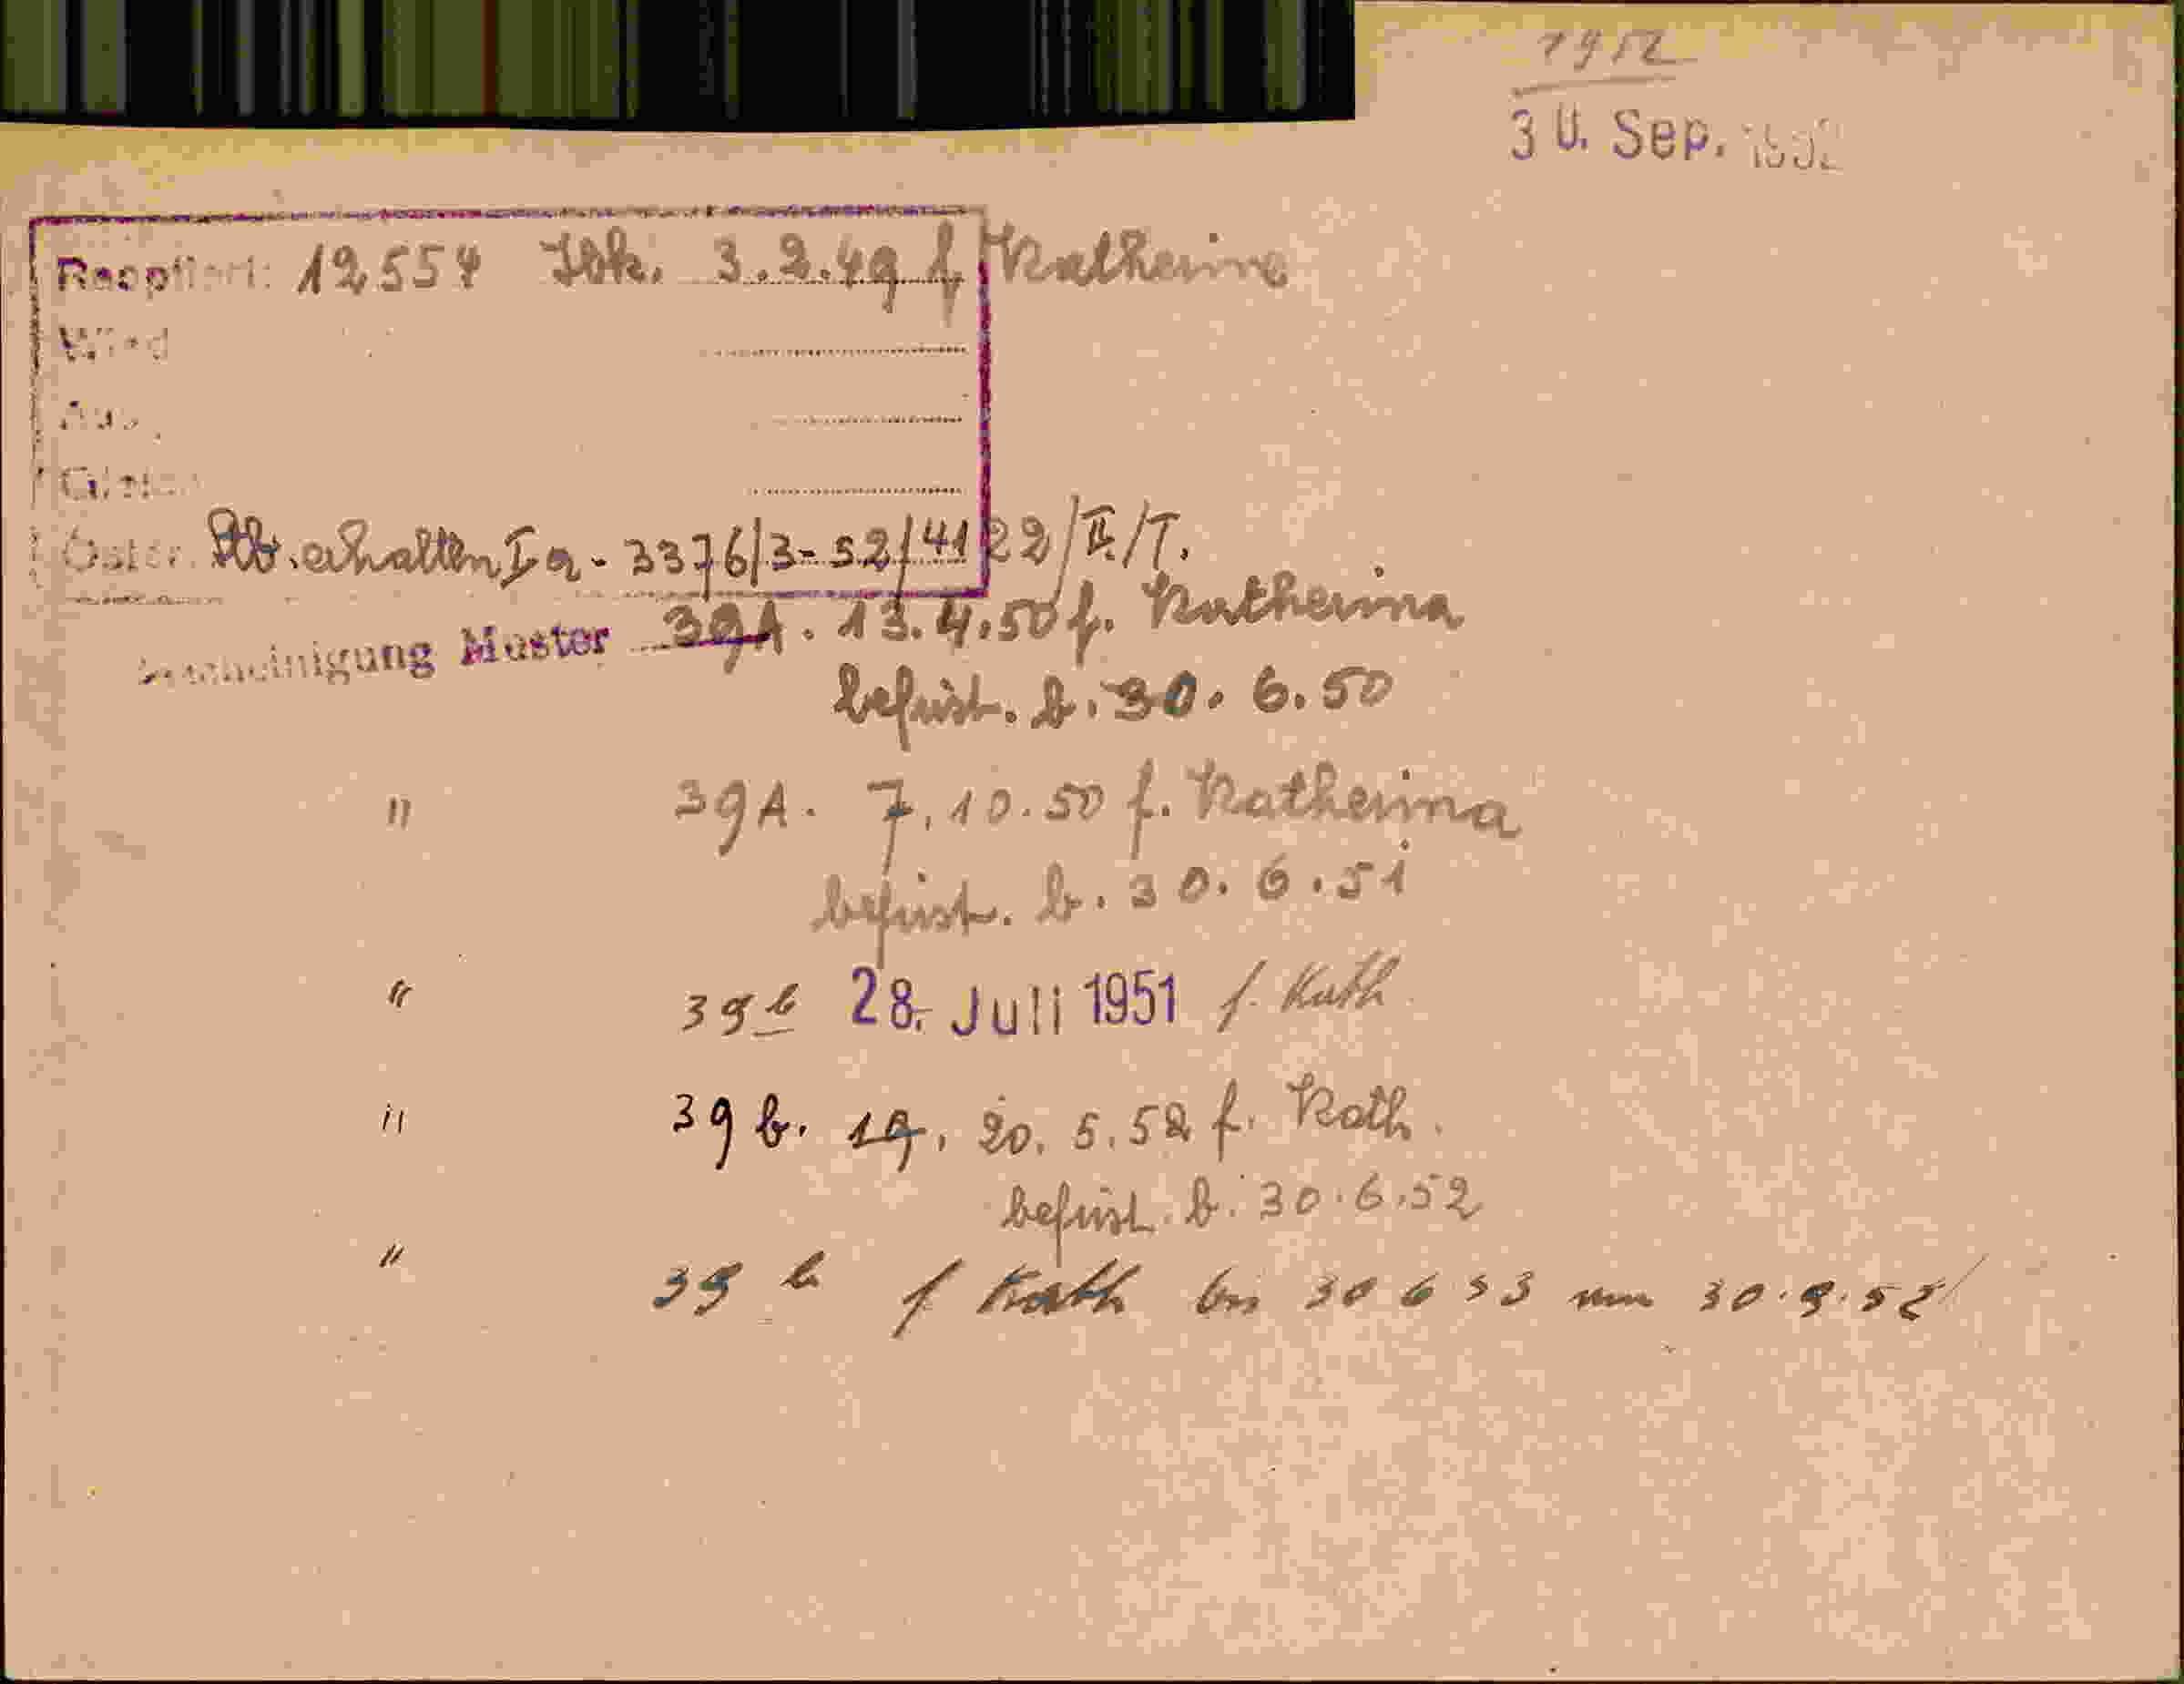 1952
30. Sep. 1952
12554 Ibk. 3.2.49 f. Katherina
Wied
Aus
Öster. Stb. erhalten Ia-3376/3-52/4122/II/T.
Bescheinigung Muster 39A. 13.4.50 f. Katherina
befrist. b. 30. 6. 50
" 39A. 7.10.50 f. Katherina
befrist. b. 30. 6. 51
" 39b 28. Juli 1951 f. Kath.
" 39b. 19. 20. 5. 52 f. Kath.
befrist. b. 30.6.52
" 39b f Kath bis 30 6 53 am 30.9.52